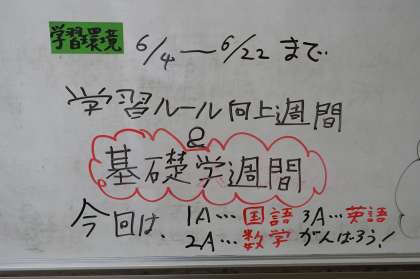 学習環境 6/4―6/22まで
学習ルール向上週間
&
基礎学週間
今回は、1A…国語 3A…英語
2A…数学 がんばろう!